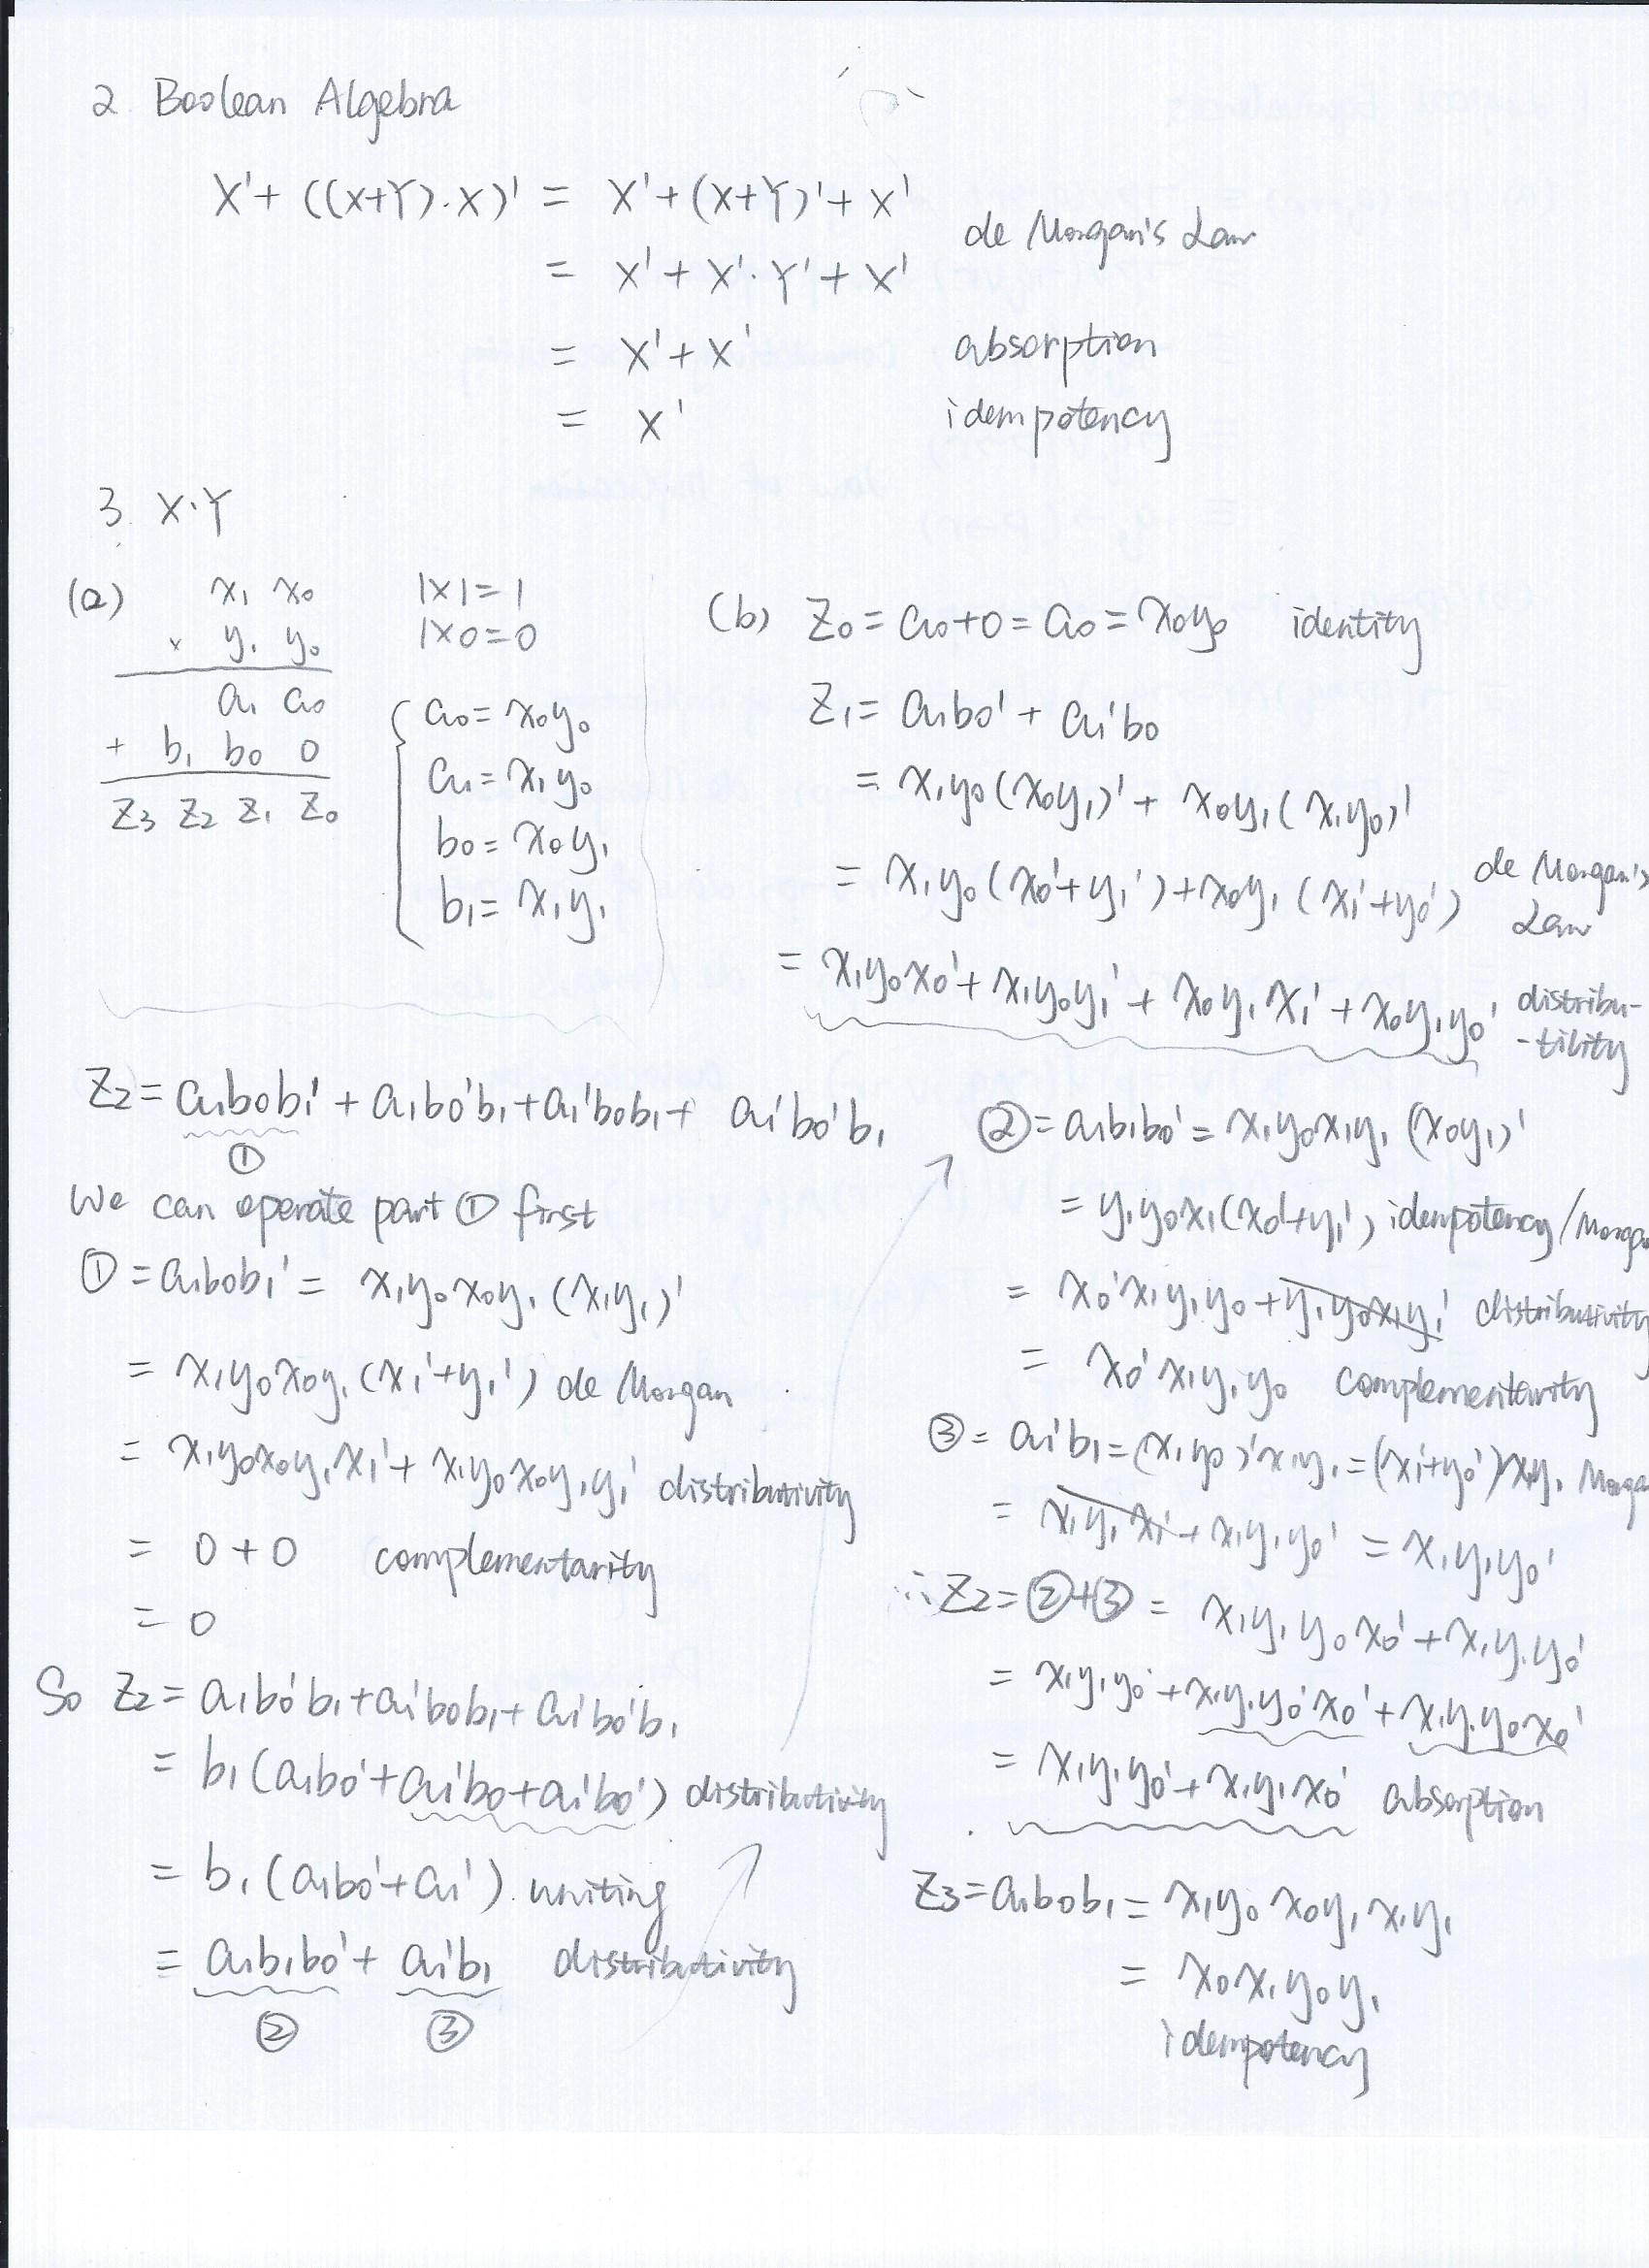 2. Boolean Algebra
X' + ((X+Y)·X)' = X' + (X+Y)' + X'
de Morgan's Law
= X' + X'·Y' + X'
= X' + X' absorption
= X' idempotency
3. X·Y
(a) x₁ x₀
× y₁ y₀
a₁ a₀
+ b₁ b₀ 0
z₃ z₂ z₁ z₀
1×1=1
1×0=0
a₀ = x₀y₀
a₁ = x₁y₀
b₀ = x₀y₁
b₁ = x₁y₁
(b) z₀ = a₀+0 = a₀ = x₀y₀ identity
z₁ = a₁b₀' + a₁'b₀
= x₁y₀(x₀y₁)' + x₀y₁(x₁y₀)'
= x₁y₀(x₀'+y₁') + x₀y₁(x₁'+y₀') de Morgan's Law
= x₁y₀x₀' + x₁y₀y₁' + x₀y₁x₁' + x₀y₁y₀' distribu-
-tility
z₂ = a₁b₀b₁' + a₁b₀'b₁ + a₁'b₀b₁ + a₁'b₀'b₁
①
We can operate part ① first
① = a₁b₀b₁' = x₁y₀x₀y₁(x₁y₁)'
= x₁y₀x₀y₁(x₁'+y₁') de Morgan
= x₁y₀x₀y₁x₁' + x₁y₀x₀y₁y₁' distributivity
= 0 + 0 complementarity
= 0
So z₂ = a₁b₀'b₁ + a₁'b₀b₁ + a₁'b₀'b₁
= b₁(a₁b₀' + a₁'b₀ + a₁'b₀') distributivity
= b₁(a₁b₀' + a₁') uniting
= a₁b₁b₀' + a₁'b₁ distributivity
② ③
② = a₁b₁b₀' = x₁y₀x₁y₁(x₀y₁)'
= y₁y₀x₁(x₀'+y₁') idempotency/Morgan
= x₀'x₁y₁y₀ + y₁y₀x₁y₁' distributivity
= x₀'x₁y₁y₀ complementarity
③ = a₁'b₁ = (x₁y₀)'x₁y₁ = (x₁'+y₀')x₁y₁ Morgan
= x₁y₁x₁' + x₁y₁y₀' = x₁y₁y₀'
∴ z₂ = ②+③ = x₁y₁y₀x₀' + x₁y₁y₀'
= x₁y₁y₀' + x₁y₁y₀'x₀' + x₁y₁y₀x₀'
= x₁y₁y₀' + x₁y₁x₀' absorption
z₃ = a₁b₀b₁ = x₁y₀x₀y₁x₁y₁
= x₀x₁y₀y₁
idempotency